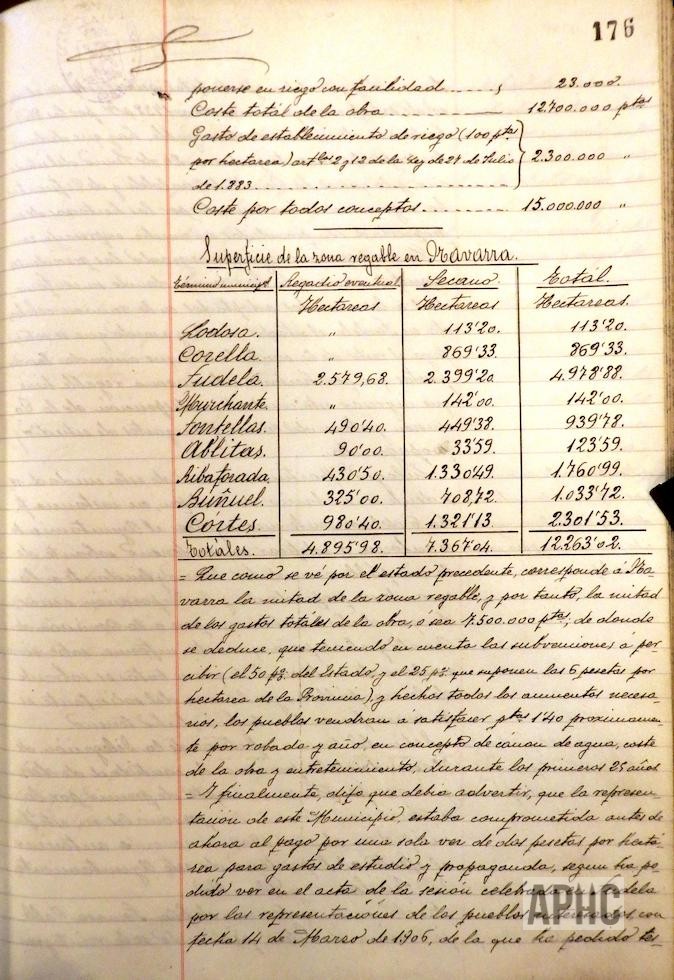 176
ponerse en riego con facilidad ..... , 23.000.
Coste total de la obra .......... 12.700.000 ptas
Gasto de establecimiento de riego (100 ptas
por hectarea) artlos 2 y 12 de la Ley de 27 de Julio 2.300.000 "
de 1.883 ..............
Coste por todos conceptos ......... 15.000.000 "
Superficie de la zona regable en Navarra.
Término municipl. Regadio eventual. Secano. Total.
Hectareas Hectareas Hectareas.
Lodosa. " 113'20. 113'20.
Corella. " 869'33. 869'33.
Tudela. 2.579,68. 2.399'20. 4.978'88.
Murchante. " 142'00. 142'00.
Fontellas. 490'40. 449'38. 939'78.
Ablitas. 90'00. 33'59. 123'59.
Ribaforada. 430'50. 1.330'49. 1.760'99.
Buñuel. 325'00. 708,72. 1.033'72.
Córtes. 980'40. 1.321'13. 2.301'53.
Totáles. 4.895'98. 7.367'04. 12.263'02.
= Que como se vé por el estado precedente, corresponde á Na-
varra la mitad de la zona regable, y por tanto, la mitad
de los gastos totáles de la obra, ó sea 7.500.000 ptas; de donde
se deduce, que teniendo en cuenta las subvenciones á per-
cibir (el 50 p% del Estado, y el 25 p% que suponen las 6 pesetas por
hectarea de la Provincia), y hechos todos los aumentos necesa-
rios, los pueblos vendran a satisfacer ptas 1'40 proximamen-
te por robada y año, en concepto de cánon de agua, coste
de la obra y entretenimiento, durante los primeros 25 años
= Y finalmente, dijo que debia advertir, que la represen-
tación de este Municipio, estaba comprometida antes de
ahora al pago por una sola vez de dos pesetas por hectá-
rea para gastos de estudio y propaganda, segun ha po-
dido ver en el acta de la sesión celebrada en Tudela
por las representaciónes de los pueblos interesados, con
fecha 14 de Marzo de 1.906, de la que ha pedido tes-
APHC